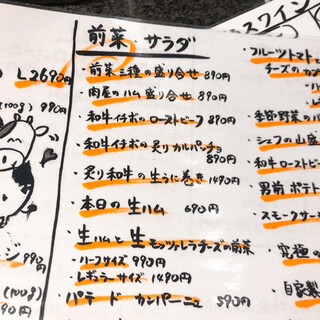 前菜・サラダ
前菜三種の盛り合せ 890円
肉屋のハム盛り合せ 890円
和牛イチボのローストビーフ 890円
和牛イチボの炙りカルパッチョ 890円
炙り和牛の生うに巻き 1490円
本日の生ハム 690円
生ハムと生モッツァレラチーズの前菜
ハーフサイズ 990円
レギュラーサイズ 1490円
パテ ド カンパーニュ 590円
L2690円
(100g) 990円
990円
(100g)
990円
スワイン
フルーツトマトと
チーズのカ
季節野菜の
シェフの山盛
和牛ローストビー
男前ポテト
スモークサー
究極の
自家製